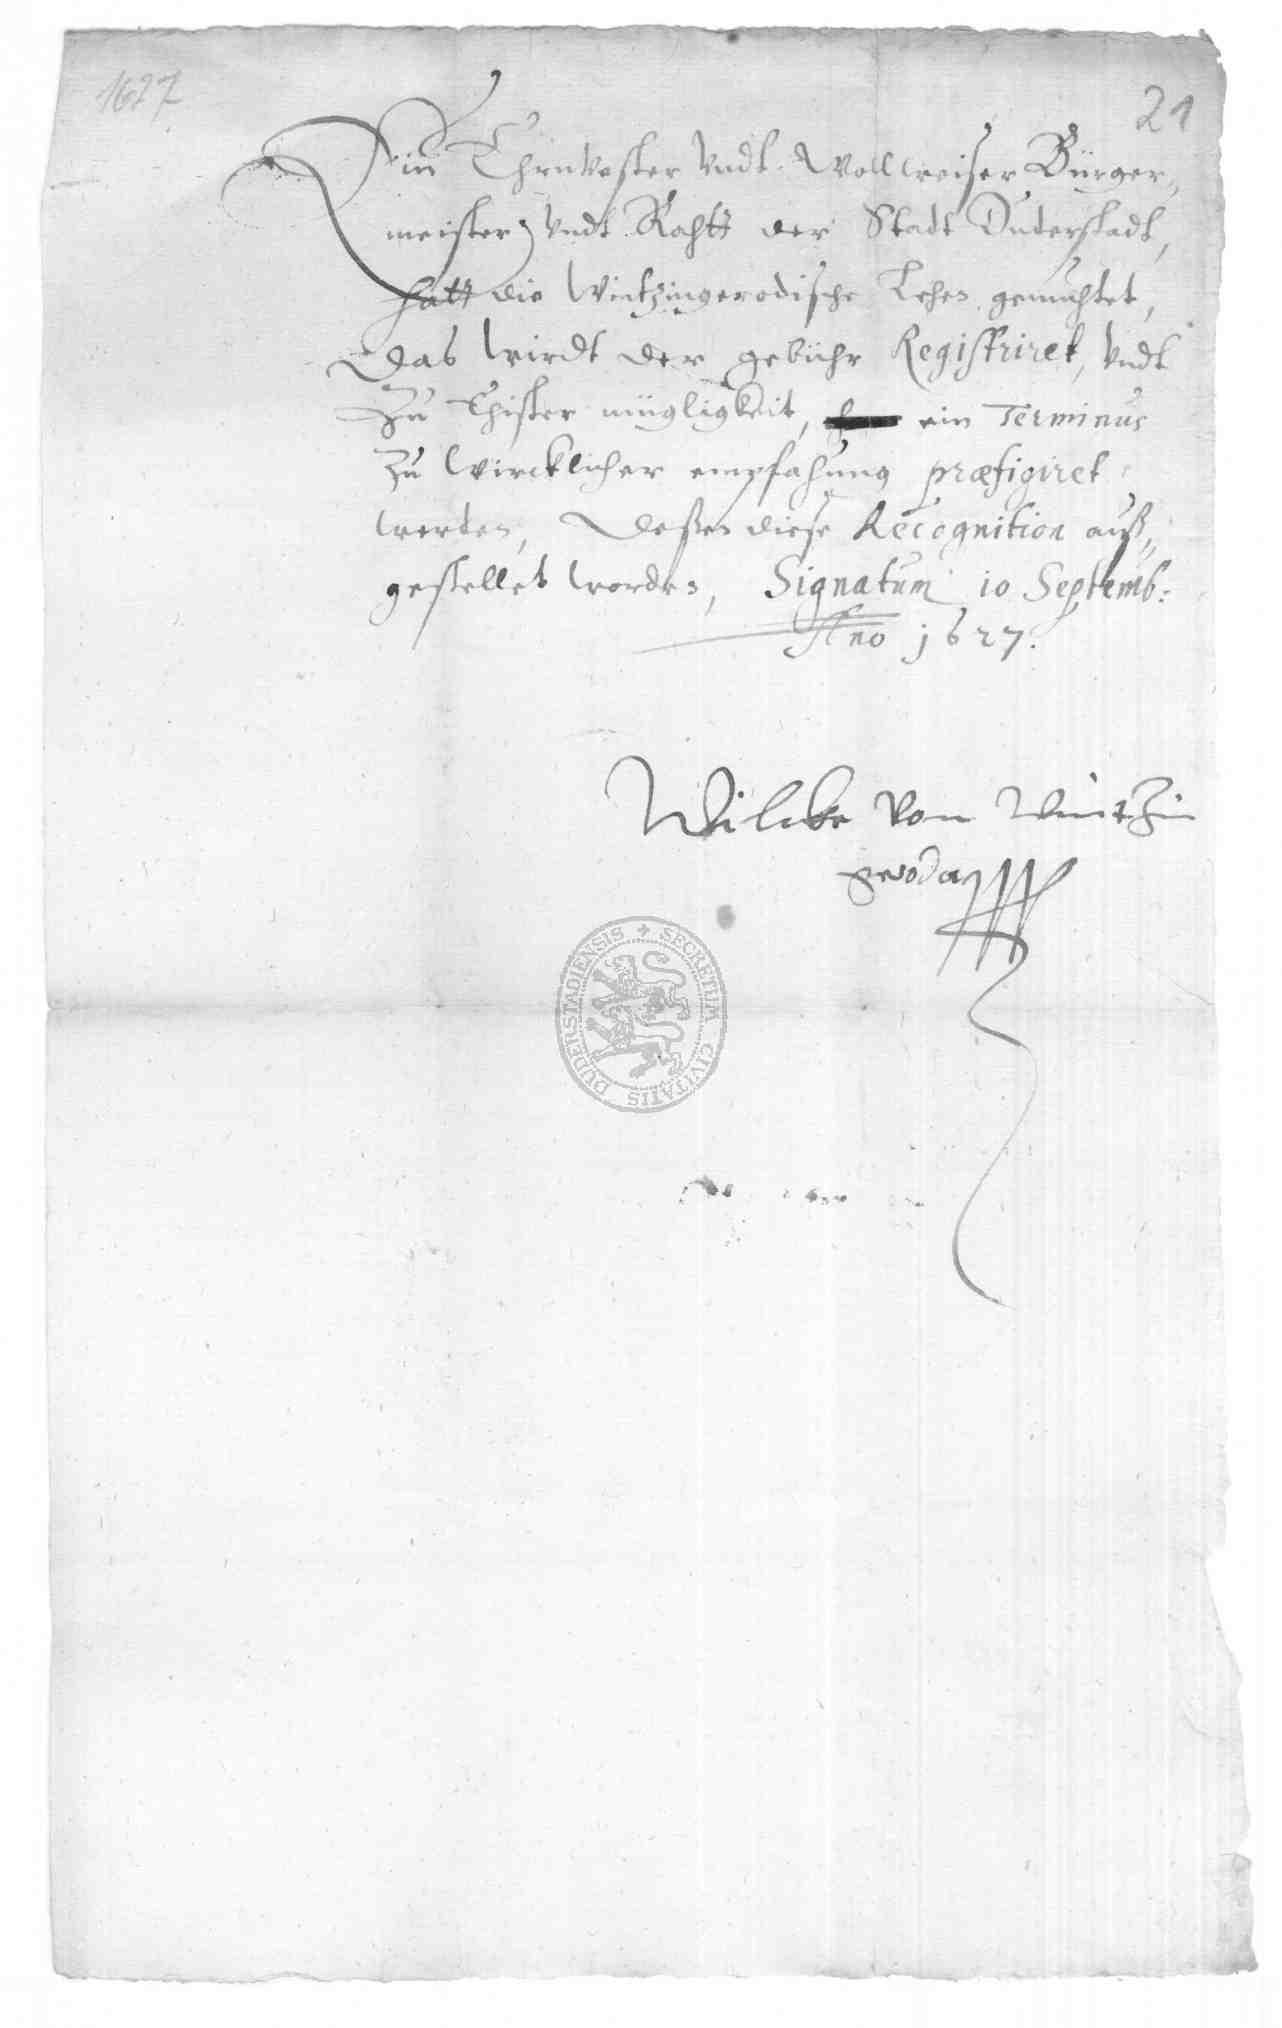 1627
21
Ein Ehrnvester Undt Wollweiser Bürger„
meister, Undt Rahtt der Stadt Duderstadt,
hatt die Wintzingerodische Lehen gemuhtet,
Das wirdt der gebühr Registriret, Undt
Zu Ehister mügligkeit, ein Terminus
Zu Wircklicher empfahung præfigiret
werden, Deßen diese Recognition auß„
gestellet worden, Signatum 10 Septemb:
Ano 1627.
Wilcke von Wintzin
geroda
DUDERSTADIENSIS + SECRETUM CIVITATIS